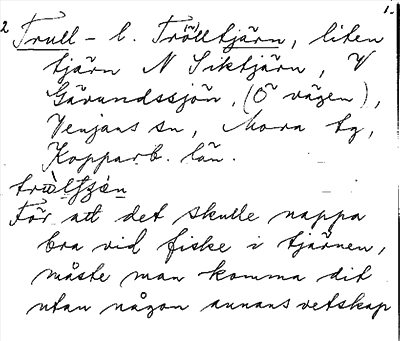 1.
2 Trull- l. Trölltjärn, liten
tjärn N Siktjärn, V
Gärundssjön, (Ö vägen),
Venjans sn, Mora tg,
Kopparb. län.
För att det skulle nappa
bra vid fiske i tjärnen,
måste man komma dit
utan någon annans vetskap